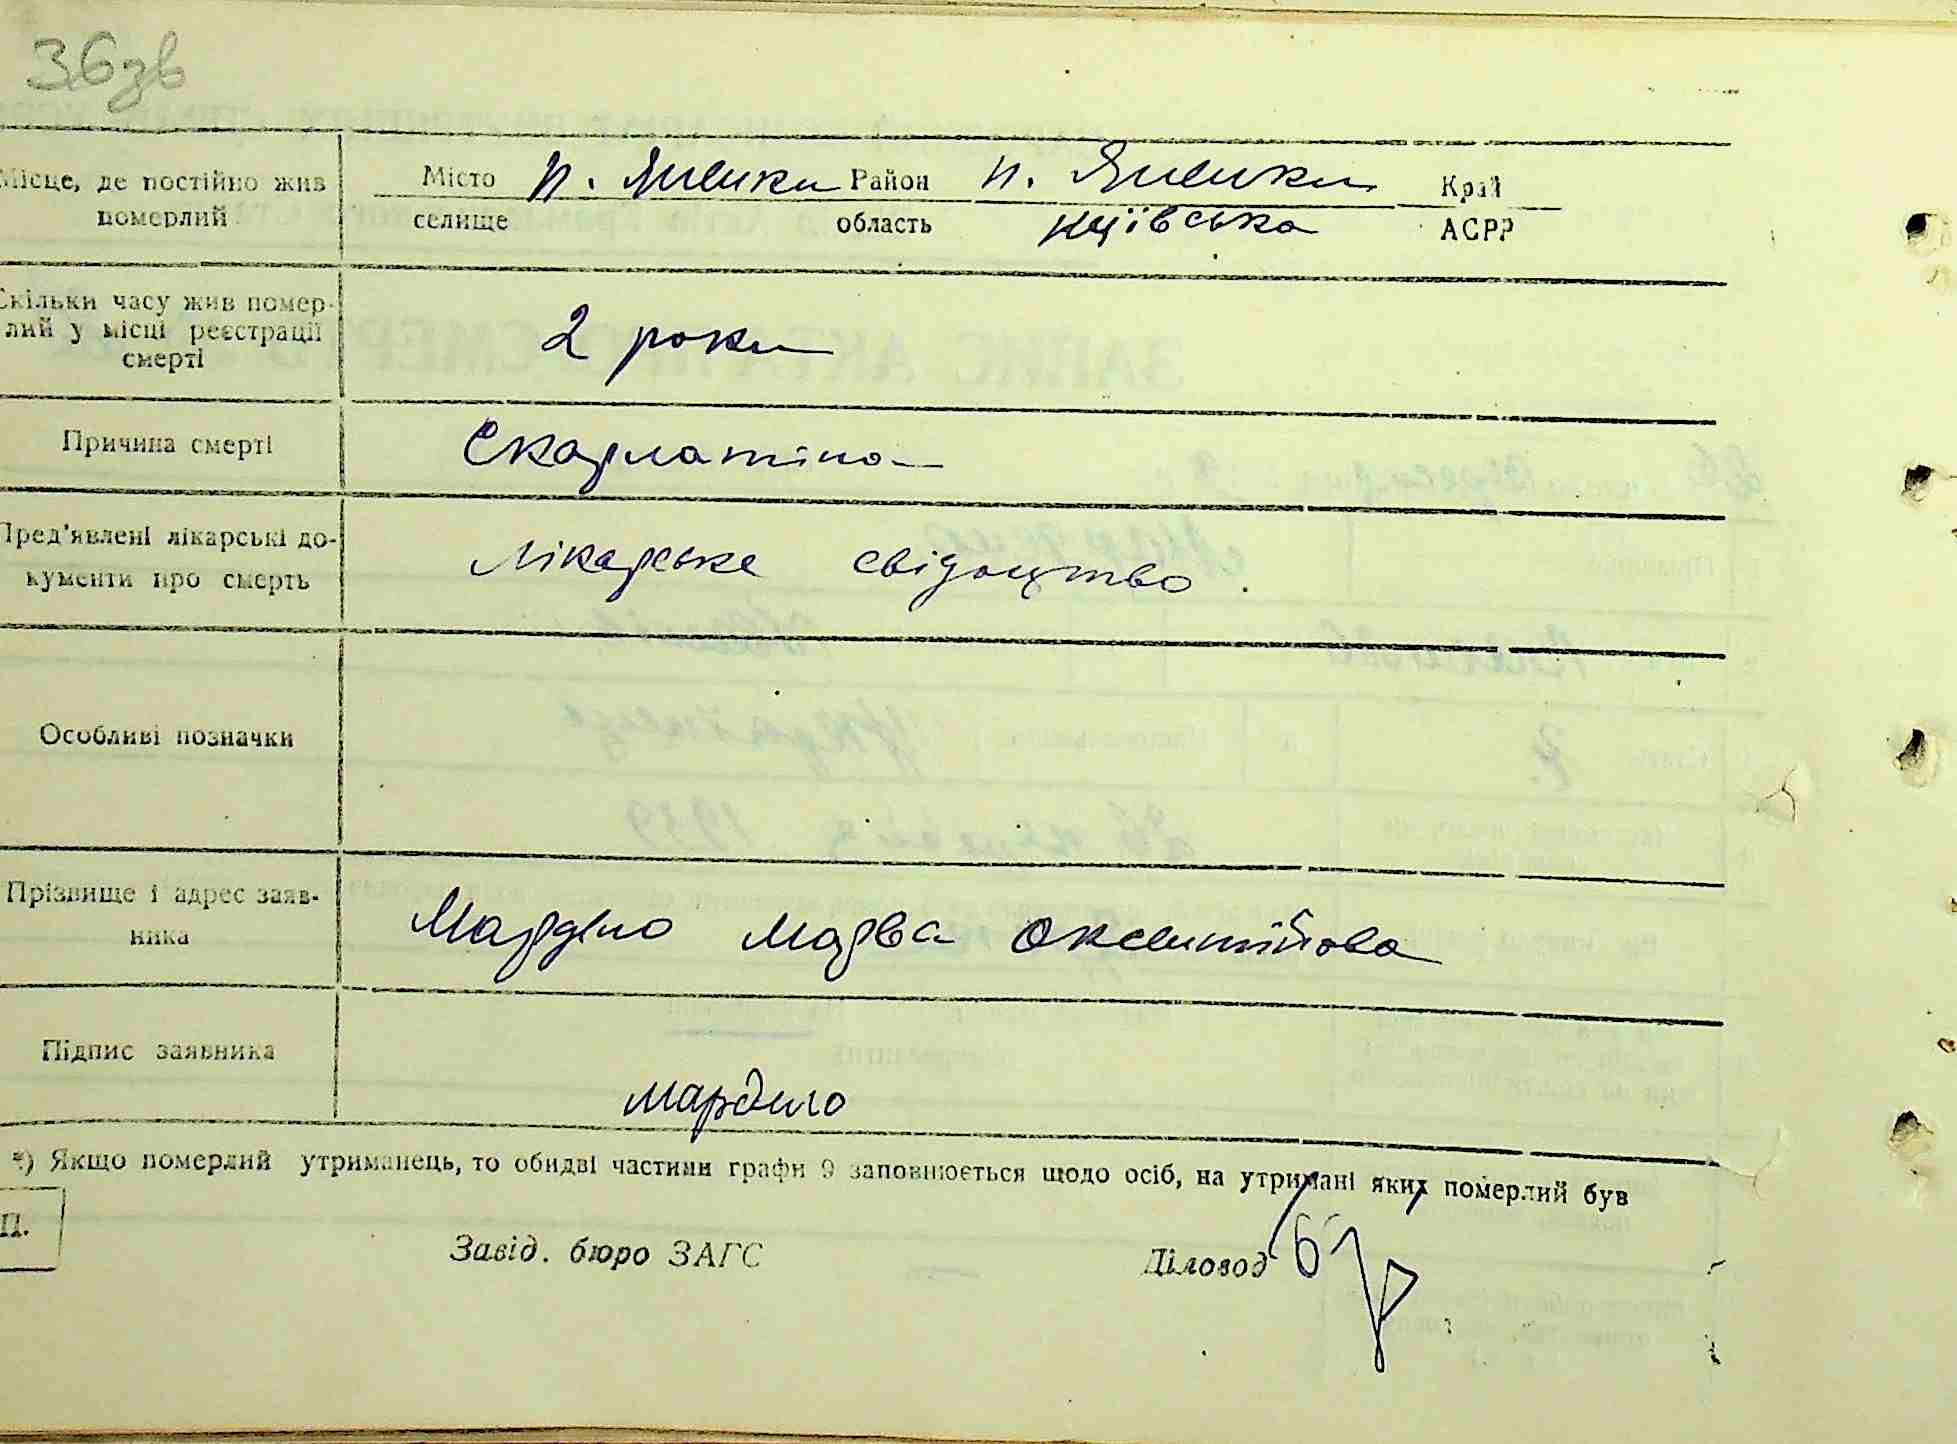 36зв
Місце, де постійно жив
померлий
Місто п. Яблики Район п. Яблики Край
селище область київська АСРР
Скільки часу жив помер-
лий у місці реєстрації
смерті
2 роки
Причина смерті
Скарлатіна
Пред'явлені лікарські до-
кументи про смерть
Лікарське свідоцтво.
Особливі позначки
Прізвище і адрес заяв-
ника
Мардило Марва
Підпис заявника
Мардило
*) Якщо померлий утриманець, то обидві частини графи 9 заповнюється щодо осіб, на утримані яких померлий був
П.
Завід. бюро ЗАГС Діловод